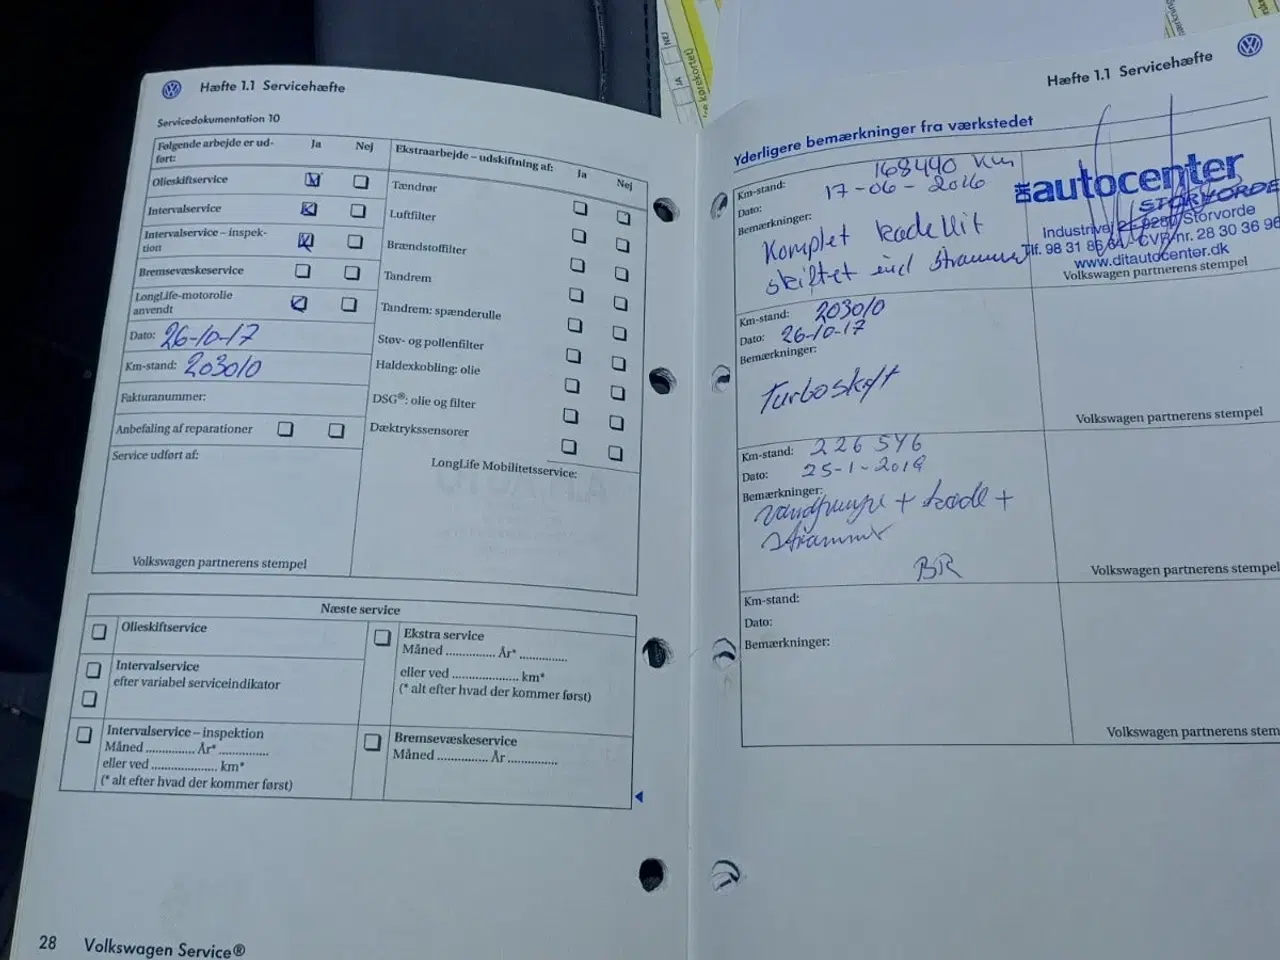 Hæfte 1.1 Servicehæfte
Servicedokumentation 10
Følgende arbejde er ud-
ført:
Ja
Nej
Olieskiftservice
Intervalservice
Intervalservice – inspek-
tion
Bremsevæskeservice
LongLife-motorolie
anvendt
Dato: 26-10-17
Km-stand: 203010
Fakturanummer:
Anbefaling af reparationer
Service udført af:
Volkswagen partnerens stempel
Ekstraarbejde – udskiftning af:
Ja
Nej
Tændrør
Luftfilter
Brændstoffilter
Tandrem
Tandrem: spænderulle
Støv- og pollenfilter
Haldexkobling: olie
DSG®: olie og filter
Dæktrykssensorer
LongLife Mobilitetsservice:
Næste service
Olieskiftservice
Intervalservice
efter variabel serviceindikator
Intervalservice – inspektion
Måned .............. År* ..............
eller ved .................... km*
(* alt efter hvad der kommer først)
Ekstra service
Måned .............. År* ..............
eller ved .................... km*
(* alt efter hvad der kommer først)
Bremsevæskeservice
Måned .............. År ..............
28 Volkswagen Service®
NEJ
JA
Hæfte 1.1 Servicehæfte
Yderligere bemærkninger fra værkstedet
Km-stand: 168440 Km
Dato: 17-06-2016
Bemærkninger:
Komplet kadekit
skiftet ind
autocenter
STORVORDE
Industrivej Storvorde
Tlf. 98 31 86 CVR-nr. 28 30 36 96
www.ditautocenter.dk
Volkswagen partnerens stempel
Km-stand: 203010
Dato: 26-10-17
Bemærkninger:
Turboskift
Volkswagen partnerens stempel
Km-stand: 226546
Dato: 25-1-2019
Bemærkninger:
Vandpumpe + kæde +
strammer
BR
Volkswagen partnerens stempel
Km-stand:
Dato:
Bemærkninger:
Volkswagen partnerens stem